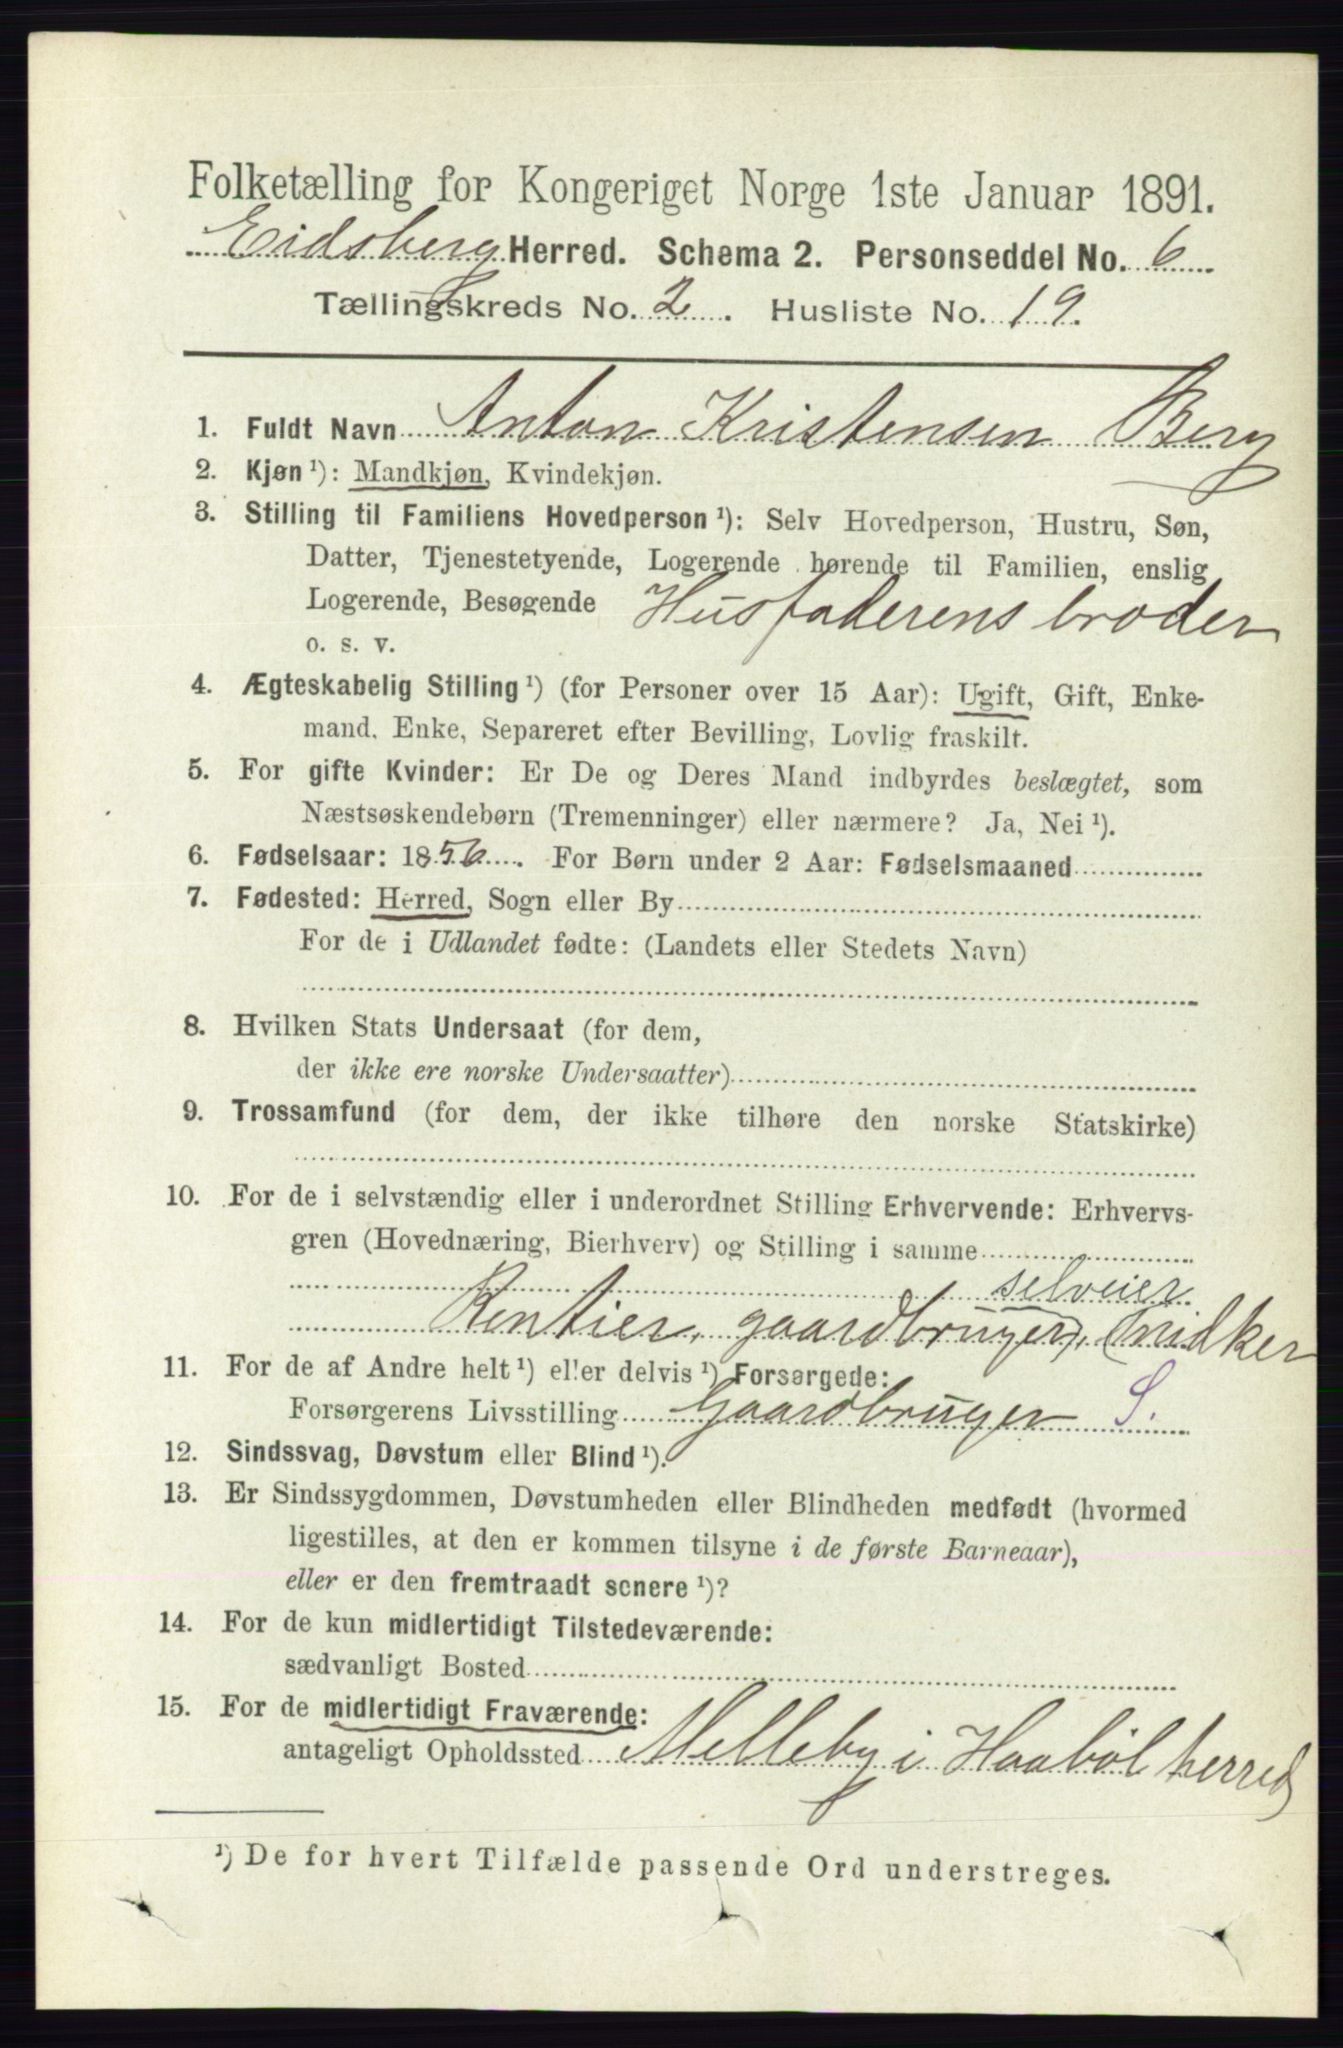 Folketælling for Kongeriget Norge 1ste Januar 1891.
Eidsberg Herred. Schema 2. Personseddel No. 6
Tællingskreds No. 2. Husliste No. 19.
1. Fuldt Navn Anton Kristensen Berg
2. Kjøn ¹): Mandkjøn, Kvindekjøn.
3. Stilling til Familiens Hovedperson ¹): Selv Hovedperson, Hustru, Søn,
Datter, Tjenestetyende, Logerende hørende til Familien, enslig
Logerende, Besøgende Husfaderens broder
o. s. v.
4. Ægteskabelig Stilling ¹) (for Personer over 15 Aar): Ugift, Gift, Enke-
mand, Enke, Separeret efter Bevilling, Lovlig fraskilt.
5. For gifte Kvinder: Er De og Deres Mand indbyrdes beslægtet, som
Næstsøskendebørn (Tremenninger) eller nærmere? Ja, Nei ¹).
6. Fødselsaar: 1856. For Børn under 2 Aar: Fødselsmaaned
7. Fødested: Herred, Sogn eller By
For de i Udlandet fødte: (Landets eller Stedets Navn)
8. Hvilken Stats Undersaat (for dem,
der ikke ere norske Undersaatter)
9. Trossamfund (for dem, der ikke tilhøre den norske Statskirke)
10. For de i selvstændig eller i underordnet Stilling Erhvervende: Erhvervs-
gren (Hovednæring, Bierhverv) og Stilling i samme
selveier
Rentier, gaardbruger,
11. For de af Andre helt ¹) eller delvis ¹) Forsørgede:
Forsørgerens Livsstilling Gaardbruger S.
12. Sindssvag, Døvstum eller Blind ¹).
13. Er Sindssygdommen, Døvstumheden eller Blindheden medfødt (hvormed
ligestilles, at den er kommen tilsyne i de første Barneaar),
eller er den fremtraadt senere ¹)?
14. For de kun midlertidigt Tilstedeværende:
sædvanligt Bosted
15. For de midlertidigt Fraværende:
antageligt Opholdssted Melleby i Haabøl herred
¹) De for hvert Tilfælde passende Ord understreges.